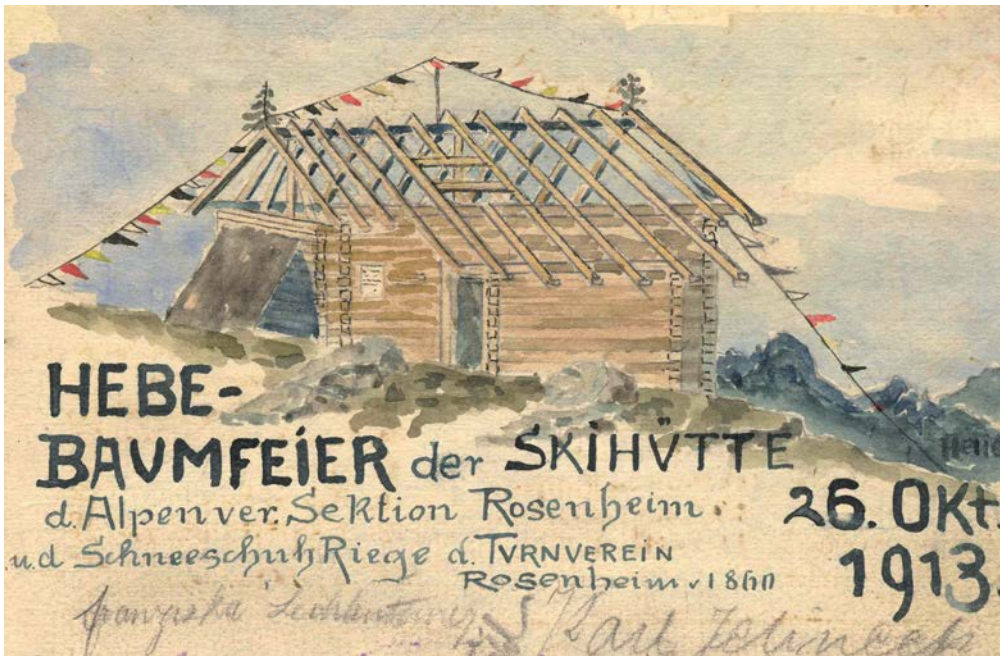 HEBE-
BAVMFEIER der SKIHÜTTE
d. Alpenver. Sektion Rosenheim
u. d Schneeschuh Riege d. TVRNVEREIN
Rosenheim v. 1860
26. OKt.
1913.
Franziska
Karl